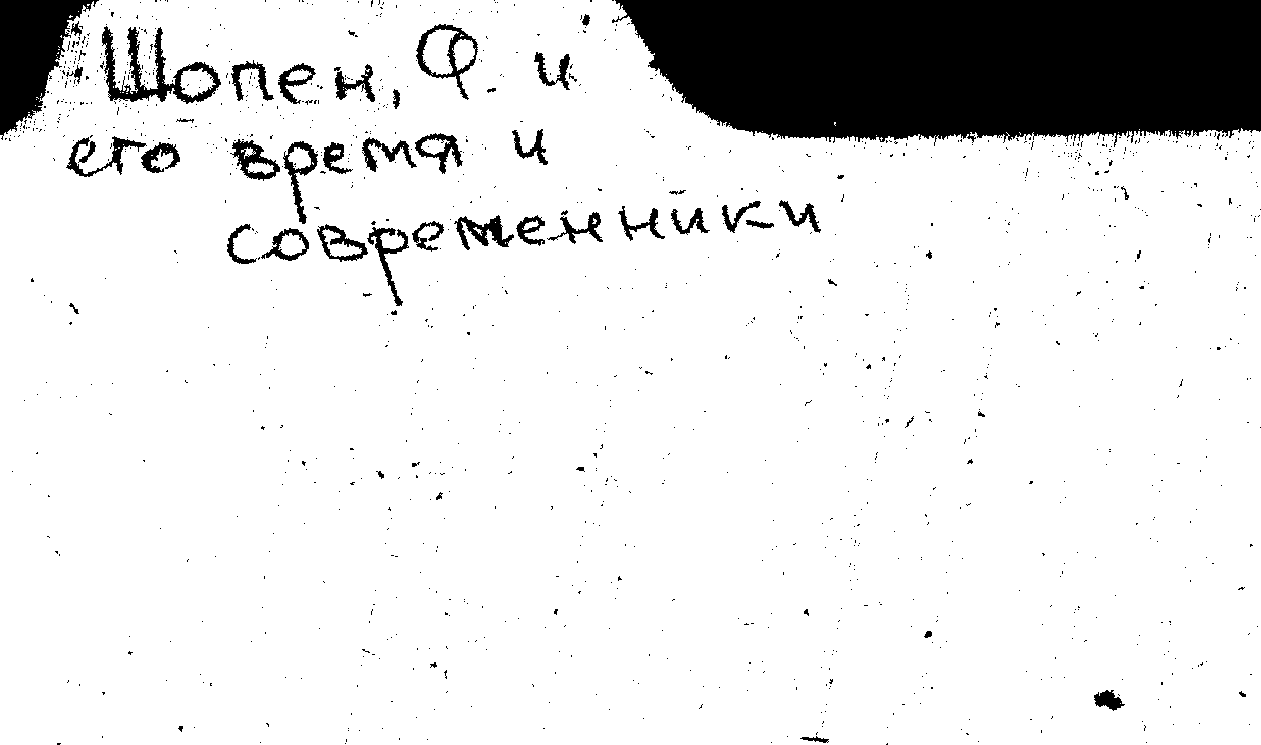 Шопен, Ф. и
его время и
современники